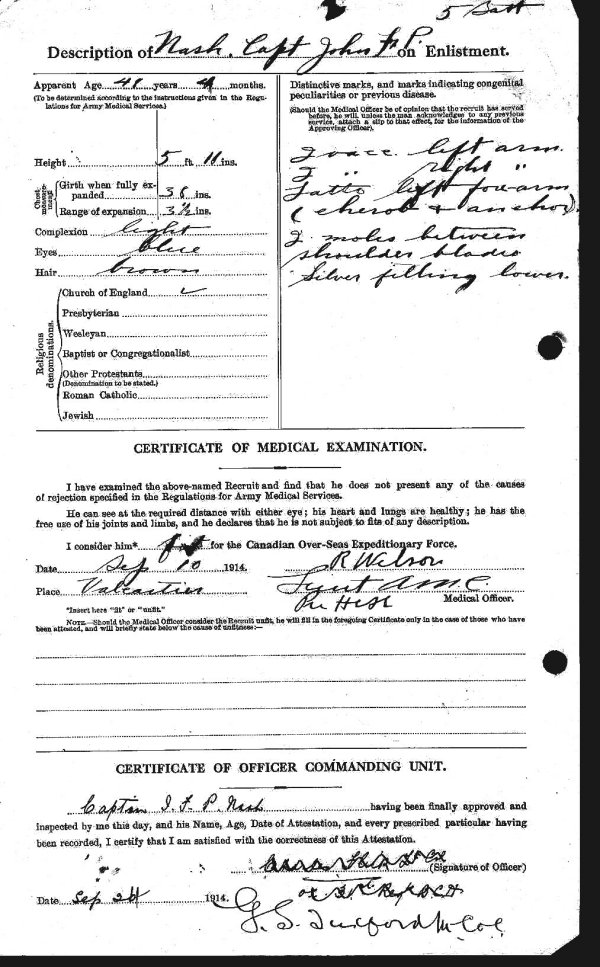 5 Batt
Description of Nash, Capt John F P. on Enlistment.
Apparent Age 41 years 4 months.
(To be determined according to the instructions given in the Regu-
lations for Army Medical Services.)
Height 5 ft. 11 ins.
Chest-
measure-
ment
Girth when fully ex-
panded 38 ins.
Range of expansion 3½ ins.
Complexion light
Eyes blue
Hair brown
Religious
denominations.
Church of England
Presbyterian
Wesleyan
Baptist or Congregationalist
Other Protestants
(Denomination to be stated.)
Roman Catholic
Jewish
Distinctive marks, and marks indicating congenital
peculiarities or previous disease.
(Should the Medical Officer be of opinion that the recruit has served
before, he will, unless the man acknowledges to any previous
service, attach a slip to that effect, for the information of the
Approving Officer).
2 vacc. left arm.
2 " right "
Tatto left forearm
(cherob & anchor).
2 moles between
shoulder blades
Silver filling lower.
CERTIFICATE OF MEDICAL EXAMINATION.
I have examined the above-named Recruit and find that he does not present any of the causes
of rejection specified in the Regulations for Army Medical Services.
He can see at the required distance with either eye; his heart and lungs are healthy; he has the
free use of his joints and limbs, and he declares that he is not subject to fits of any description.
I consider him* fit for the Canadian Over-Seas Expeditionary Force.
Date Sep 10 1914. R Wilson
Place Valcartier Lieut A.M.C.
Medical Officer.
*Insert here "fit" or "unfit."
NOTE.—Should the Medical Officer consider the Recruit unfit, he will fill in the foregoing Certificate only in the case of those who have
been attested, and will briefly state below the cause of unfitness:—
CERTIFICATE OF OFFICER COMMANDING UNIT.
Captain J. F. P. Nash having been finally approved and
inspected by me this day, and his Name, Age, Date of Attestation, and every prescribed particular having
been recorded, I certify that I am satisfied with the correctness of this Attestation.
(Signature of Officer)
Date Sep 24 1914.
G. S. Tuxford